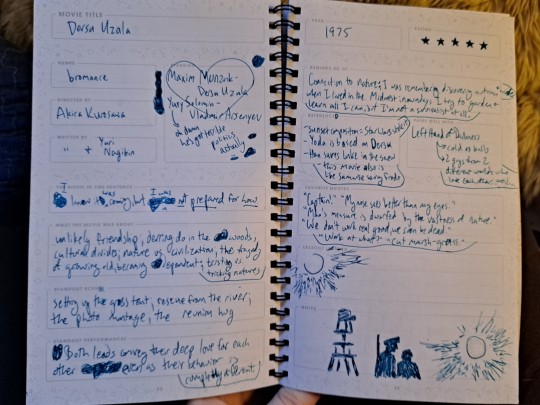 MOVIE TITLE
Dersu Uzala
GENRE
bromance
DIRECTED BY
Akira Kurosawa
WRITTEN BY
" + Yuri
Nagibin
Maxim Munzuk -
Dersu Uzala
Yury Solomin -
Vladimir Arsenyev
damn
he's got terrible
politics
actually
THE MOVIE IN ONE SENTENCE
I knew it was coming but I was not prepared for how
WHAT THE MOVIE WAS ABOUT
unlikely friendship; derring do in the woods;
cultural divides; nature vs civilization; the tragedy
of growing old, becoming dependent; trusting vs
trusting natures
STANDOUT SCENES
setting up the grass tent, rescue from the river;
the photo montage; the reunion hug
STANDOUT PERFORMANCES
Both leads convey their deep love for each
other even as their behavior is
completely different
YEAR
1975
RATING
★★★★★
REMINDS ME OF
Connection to nature; I was remembering discovering
when I lived in the Midwest. nowadays I try to garden +
learn all I can, but I'm not a survivalist at all.
- sunset composition = Star Wars
- Yoda is based on Dersu
- Han saves Luke in the snow
this movie also is
like Samwise saving Frodo
Left Hand of Darkness
→ cold as balls
→ 2 guys from 2
different worlds who
love each other
FAVORITE QUOTES
"Captain!" "My nose sees better than my eyes."
"Man's measure is dwarfed by the vastness of nature."
"We don't work real good, we can be dead."
"Work at what?" "Cut marsh-grass."
LESSONS
NOTES